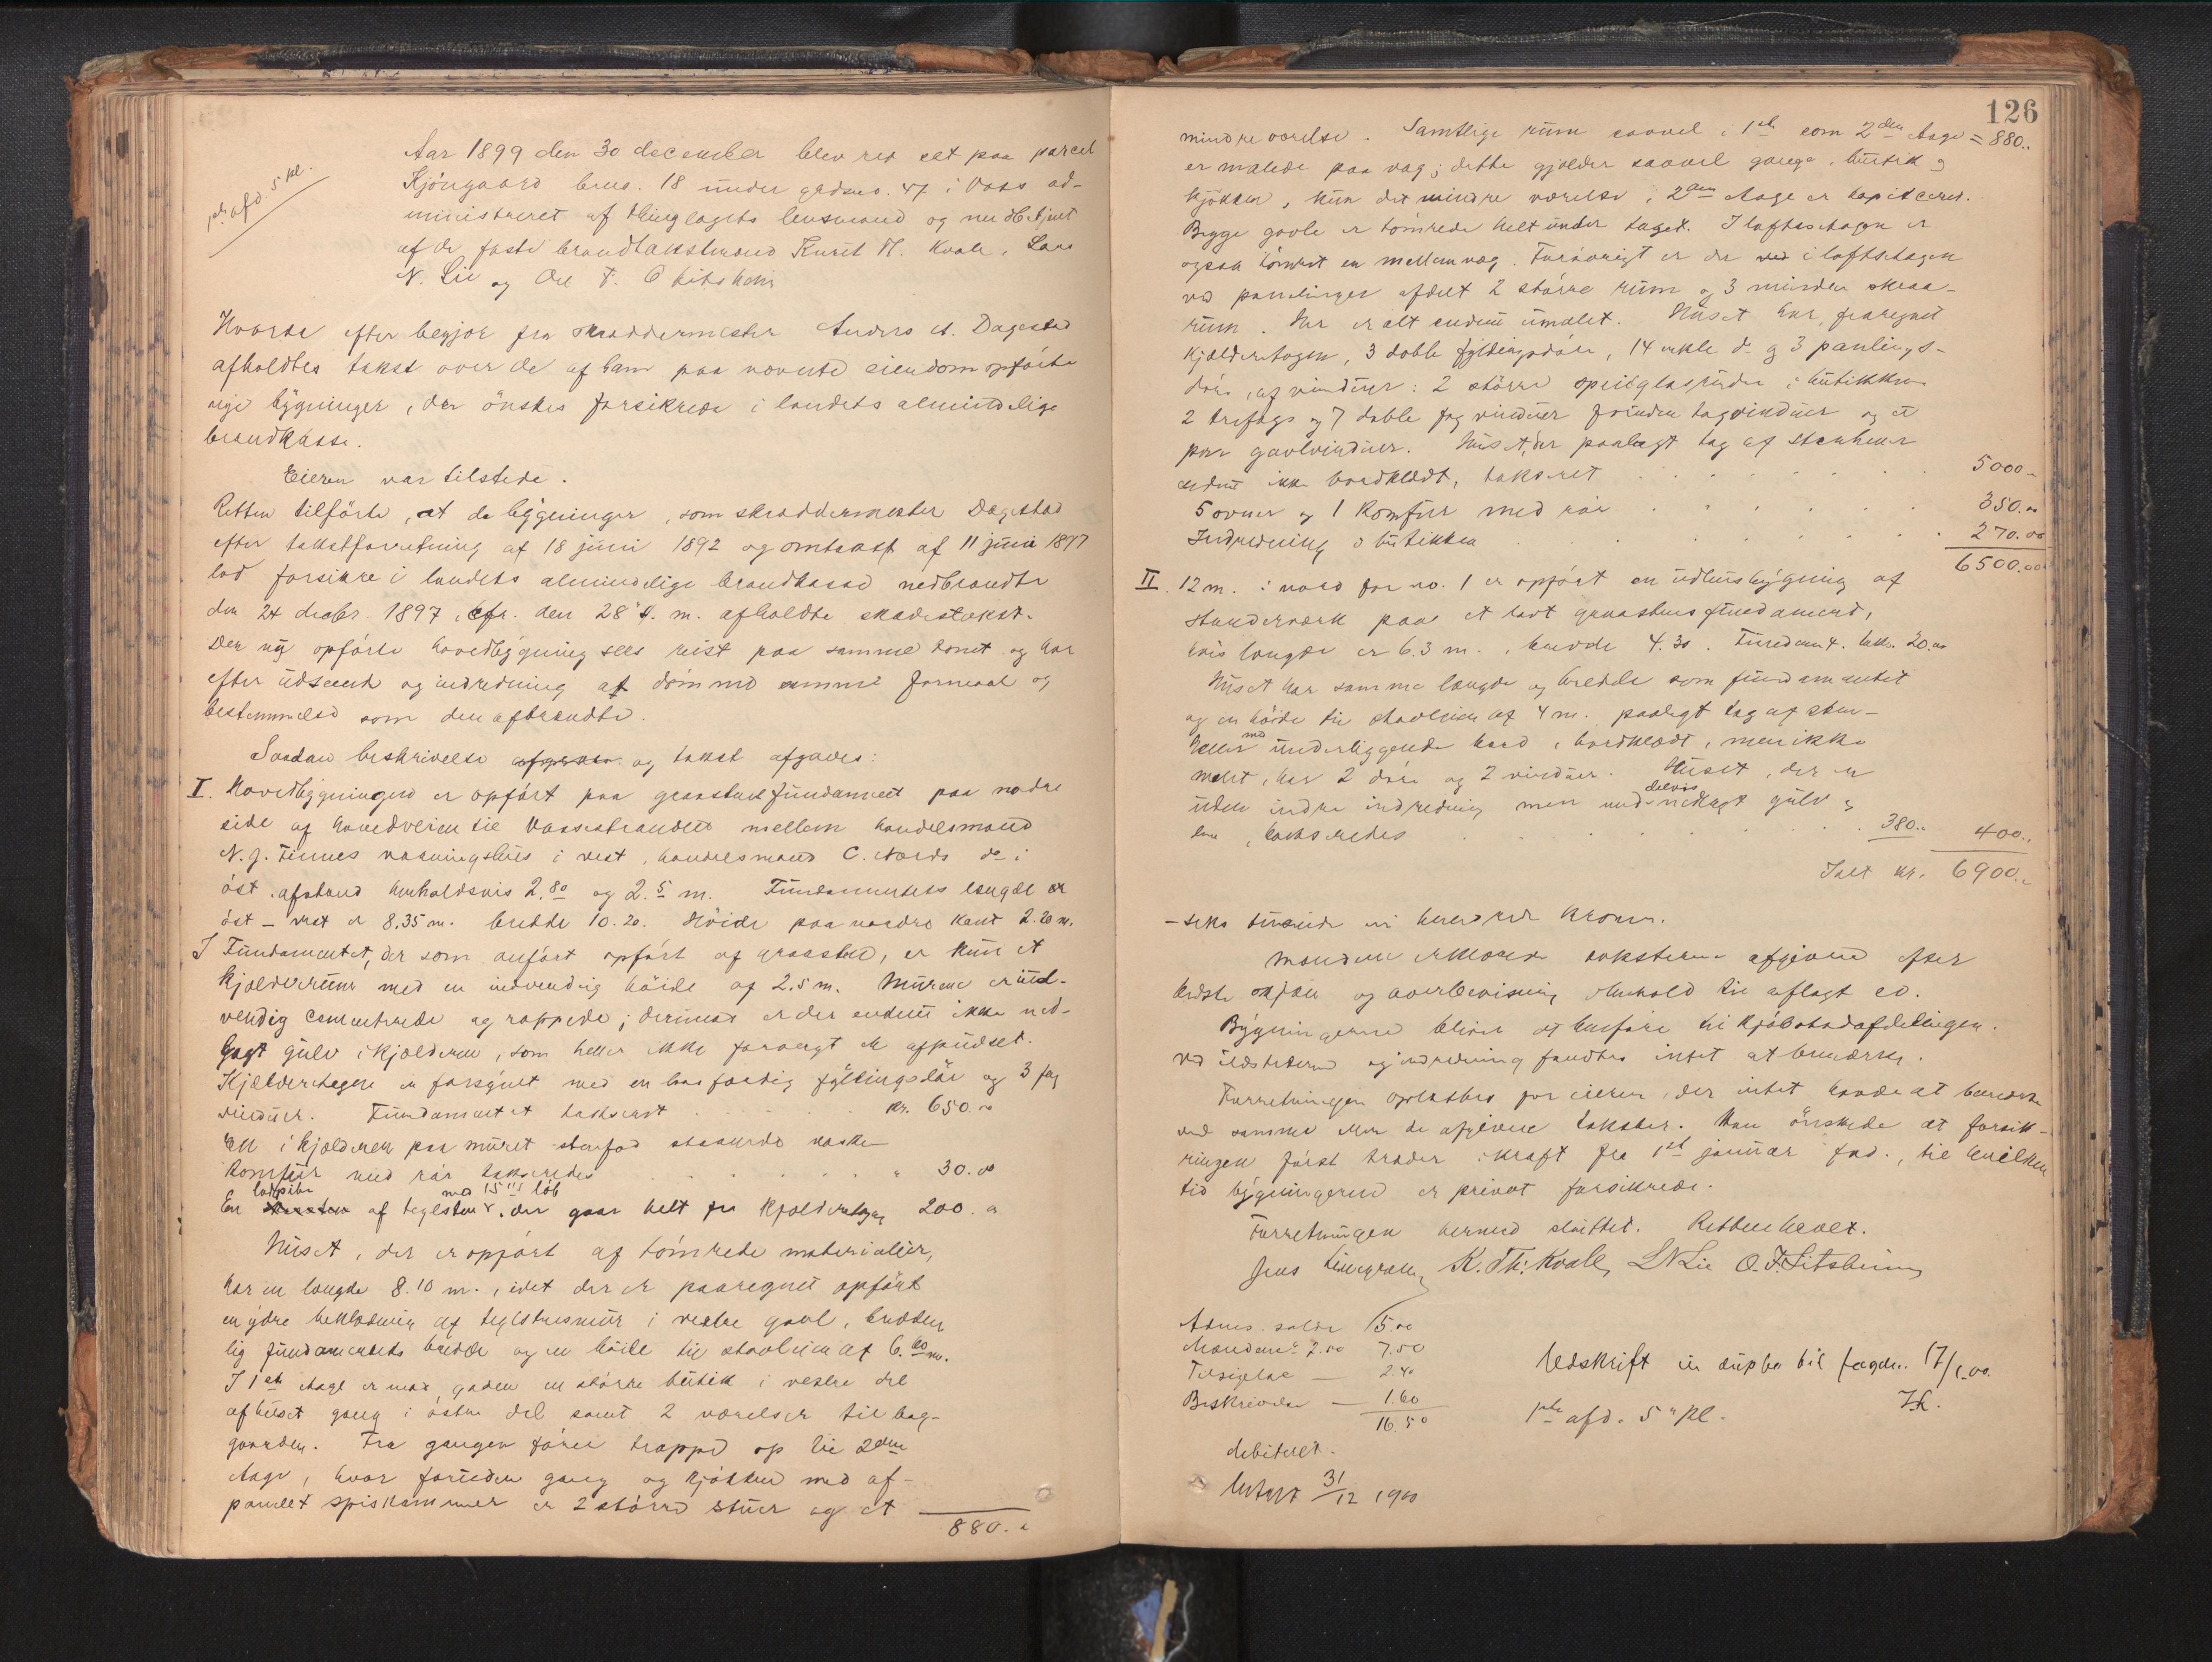 1ste afd. 5 kl.
Aar 1899 den 30 december blev ret sat paa parcel
Kjöngaard brus. 18 under gadsno. 47 i Voss ad-
ministreret af thinglagets lensmand og med betjent
af de faste brandtakstmænd Knut Th. Kvale, Lars
N. Lie og Ole T. Sitsheim
Hvorda efter begjær fra skræddermester Anders A. Dagestad
afholdtes takst over de af ham paa nævnte eiendom opførte
nye bygninger, der önskes forsikrede i landets almindelige
brandkasse.
Eieren var tilstede.
Retten tilførte, at de bygninger, som skræddermester Dagestad
efter takstforretning af 18 juni 1892 og omtakst af 11 juni 1897
lod forsikre i landets almindelige brandkasse nedbrændte
den 24 decbr. 1897, cfr. den 28 s. m. afholdte skadestakst.
Den ny opførte hovedbygning sees reist paa samme tomt og har
efter udseende og indredning at dømme samme formaal og
bestemmelse som den afbrændte.
Saadan beskrivelse og takst afgaves:
I. Hovedbygningen er opført paa graastensfundament paa nedre
side af hovedveien til Vossestranden mellem handelsmand
N. J. Finnes vaaningshus i vest, handelsmand C. Nords do i
öst, afstand henholdsvis 2.80 og 2.5 m. Fundamentets længde er
öst – vest er 8.35 m. bredde 10.20. Höide paa nordre kant 2.20 m.
I Fundamentet, der som anført opført af graasten, er kun et
kjælderrum med en indvendig höide af 2.5 m. Murene er ind-
vendig cementerede og rappede; derimod er der endnu ikke ned-
lagt gulv i kjælderen, som heller ikke forøvrigt er afpudset.
Kjælderetagen er forsynet med en haa færdig fyldingsdör og 3 fag
vinduer. Fundamentet takseret . . . . . kr. 650.00
En i kjælderen paa muret stenfod staaende vaske
komfur med rör takseredes . . . . . " 30.00
En ladpibe af teglsten med 15''' løb, der gaar helt fra kjælderetagen 200.00
Huset, der er opført af tömrede materialier,
har en længde 8.10 m., idet der er paaregnet opført
en ydre beklædning af teglstensmur i vestre gavl, bredden
lig fundamentets bredde og en höide til stavleien af 6.60 m.
I 1ste etage er mod gaden en större butik i vestre del
af huset gang i östre del samt 2 værelser til bag-
gaarden. Fra gangen fører trappe op til 2den
etage, hvor foruden gang og kjökken med af-
panelet spiskammer er 2 större stuer og et
880.00
126
mindre værelse. Samtlige rum saavel i 1ste som 2den etage = 880.00
er malede paa væg; dette gjælder saavel gange, butik og
kjökken, kun det mindre værelse i 2den etage er tapitceret.
Begge gavle er tömrede helt under taget. I loftsetagen er
ogsaa tömret en mellemvæg. Forövrigt er der i loftsetagen
ved panelinger afdelt 2 större rum og 3 mindre skraa-
rum. Her er alt endnu umalet. Huset har, fraregnet
kjælderetagen, 3 doble fyldingsdöre, 14 enkle do og 3 panelings-
döre, af vinduer: 2 större speilglasruder i butikken
2 trefags og 7 doble fag vinduer foruden tagvinduer og et
par gavlvinduer. Huset, der paalagt tag af stenheller
endnu ikke bordklædt, takseret . . . . . 5000.–
5 ovner og 1 Komfur med rör . . . . . 350.00
Indredning i butikken . . . . . 270.00
6500.00
II. 12 m. i nord for no. 1 er opført en udhusbygning af
stenderværk paa et lavt graastensfundament,
hvis længde er 6.3 m., bredde 4.30. Fundament. taks. 20.00
Huset har samme længde og bredde som fundamentet
og en höide til stavleien af 4 m. paalagt tag af sten-
heller med underliggende bord, bordklædt, men ikke
malet, har 2 döre og 2 vinduer. Huset, der er
uden indre indredning men med delvis nedlagt gulv og
, takseredes . . . . . 380.00 400.00
Ialt kr. 6900.00
– seks tusinde ni hundrede kroner.
Mændene erklærede taksterne afgivne efter
bedste skjön og overbevisning i henhold til aflagt ed.
Bygningerne bliver at henføre til kjöbstadafdelingen.
Ved ildstederne og indredning fandtes intet at bemærke.
Forretningen oplæstes for eieren, der intet havde at bemærke
ved samme eller de afgivne takster. Han önskede at forsik-
ringen först træder i kraft fra 1ste januar fstk., til hvilken
tid bygningerne er privat forsikrede.
Forretningen hermed sluttet. Retten hævet.
K. Th: Kvale, L N Lie O. T. Sitsheim
Adms. salær 5.00
Mændene à 2.50 7.50
Forseglede — 2.40
Beskrivelse — 1.60
16.50
debiteret.
Udskrift in duplo til fogden 17/1.00.
1ste afd. 5" kl.
31/12 1900